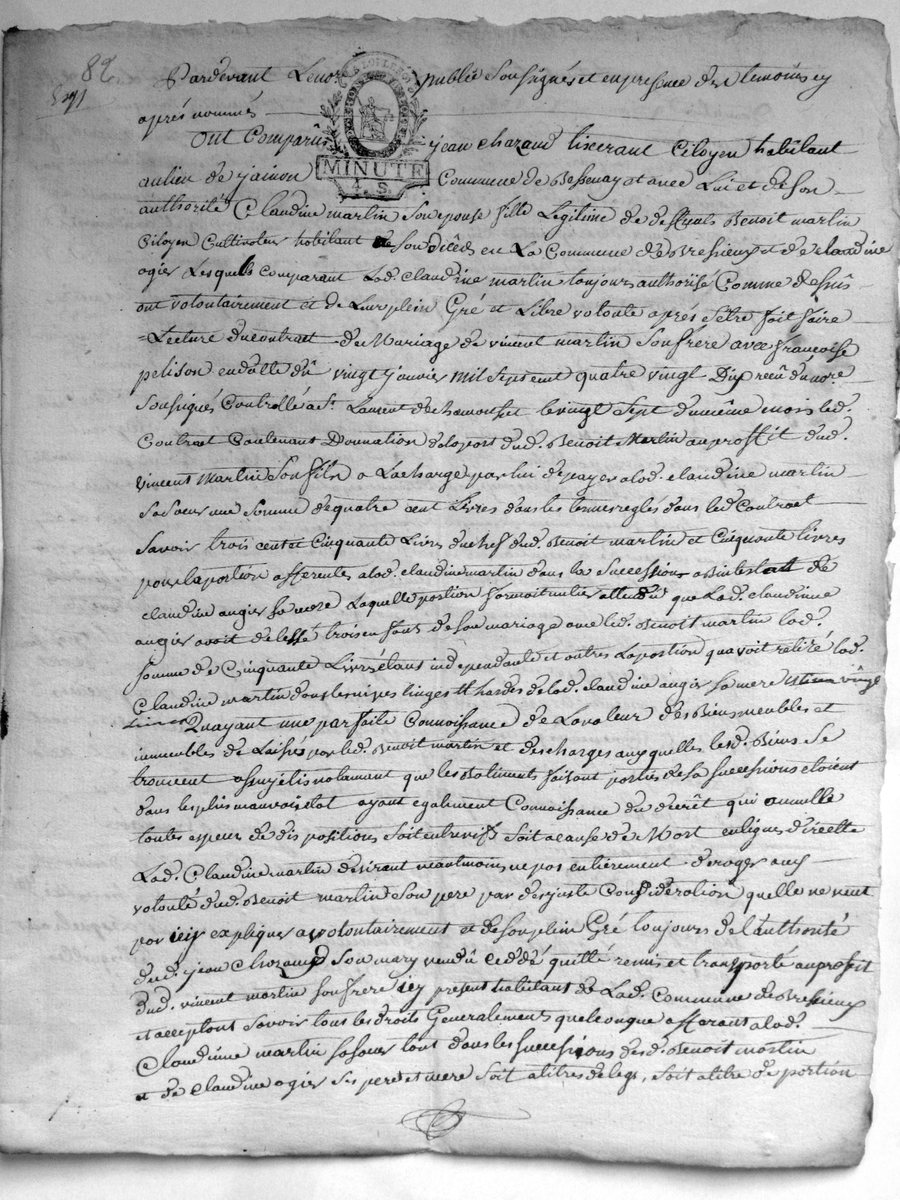 82
Pardevant Le nore public Soussignés et en presence des temoins cy
après nommés
Ont Comparû jean charand tixerant Citoyen habitant
MINUTE
4. S.
au lieu de jainon Commune de Bessenay et avec Lui et de Son
authorité Claudine martin Son epouse fille Legitime de deffunts Benoit martin
Citoyen Cultivateur habitant de Son décéd en La Commune de Bressieux et de claudine
ogier Lesquels comparant Lad. claudine martin toujours authorisé Comme dessus
ont volontairement et de Leur plein Gré et Libre volonté après s'etre fait faire
Lecture du contrat de Mariage de vincent martin Son frère avec françoise
pelison en datte du vingt janvier mil sept cent quatre vingt Dix recû du nore
Soussignés Controllé a St. Laurent de chamousset le vingt Sept du même mois led.
Contract Contenant Donnation de la part dud. Benoit Martin au proffit dud.
vincent Martin Son fils a La charge par lui de payer a lad. claudine martin
Sa Soeur une Somme de quatre cent Livres dans les termes reglés dans led. Contract
Savoir trois cent et Cinquante Livres du chef dud. Benoit martin et Cinquante livres
pour la portion afferentes a lad. claudine martin dans la Succession abintestat de
claudine angier sa mere Laquelle portion formoit un tier attendu que Lad. claudinne
angier avoit délessé trois enfans de Son mariage avec led. Benoit martin lad.
Somme de Cinquante Livres étans independante et outres La portion qu'avoit retiré lad.
Claudine martin dans les nipes linges et hardes de lad. claudine angier sa mere
Quayant une parfaite Connoissance de La valeur des Biens meubles et
immeubles de Laissés par led. Benoit martin et des charges auxquelles lesd. Biens Se
trouvent assujétis notamant que les Batiments faisant parties de sa Successions etoient
dans les plus mauvois etat ayant egalement Connoissance du decrêt qui annulle
toutes especes de dispositions Soit entrevifs Soit a cause de Mort en lignes directte
Lad. Claudine martin desirant neantmoins ne pas entièrement deroger aux
volonté dud. Benoit martin Son pere par des juste Considérations quelle ne veut
pas icy expliquer a volontairement et de Son plein Gré toujours de l'authorité
dud. jean Charand Son mary vendu Ceddé quitté remis et transporté au profit
dud. vincent martin Son frere icy present habitant de Lad. Commune de Bressieux
et acceptant Savoir tous les droits Generalement quelconque afferants a lad.
Claudinne martin Sa Soeur tant dans les Successions dud. Benoit martin
et de claudine ogier Ses pere et mere Soit a titres de legs, Soit a titre de portion